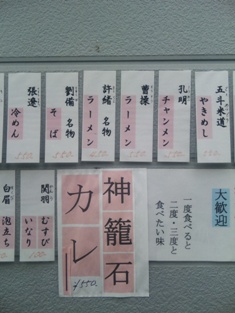 五斗米道
やきめし
550.
孔明
チャンメン
550.
曹操
ラーメン
550.
許緒 名物
ラーメン
550.
劉備 名物
そば
550.
張遼
冷めん
550.
大歓迎
一度食べると
二度・三度と
食べたい味
神籠石
カレー
¥550.
関羽
むすび
いなり
白眉
泡立ち